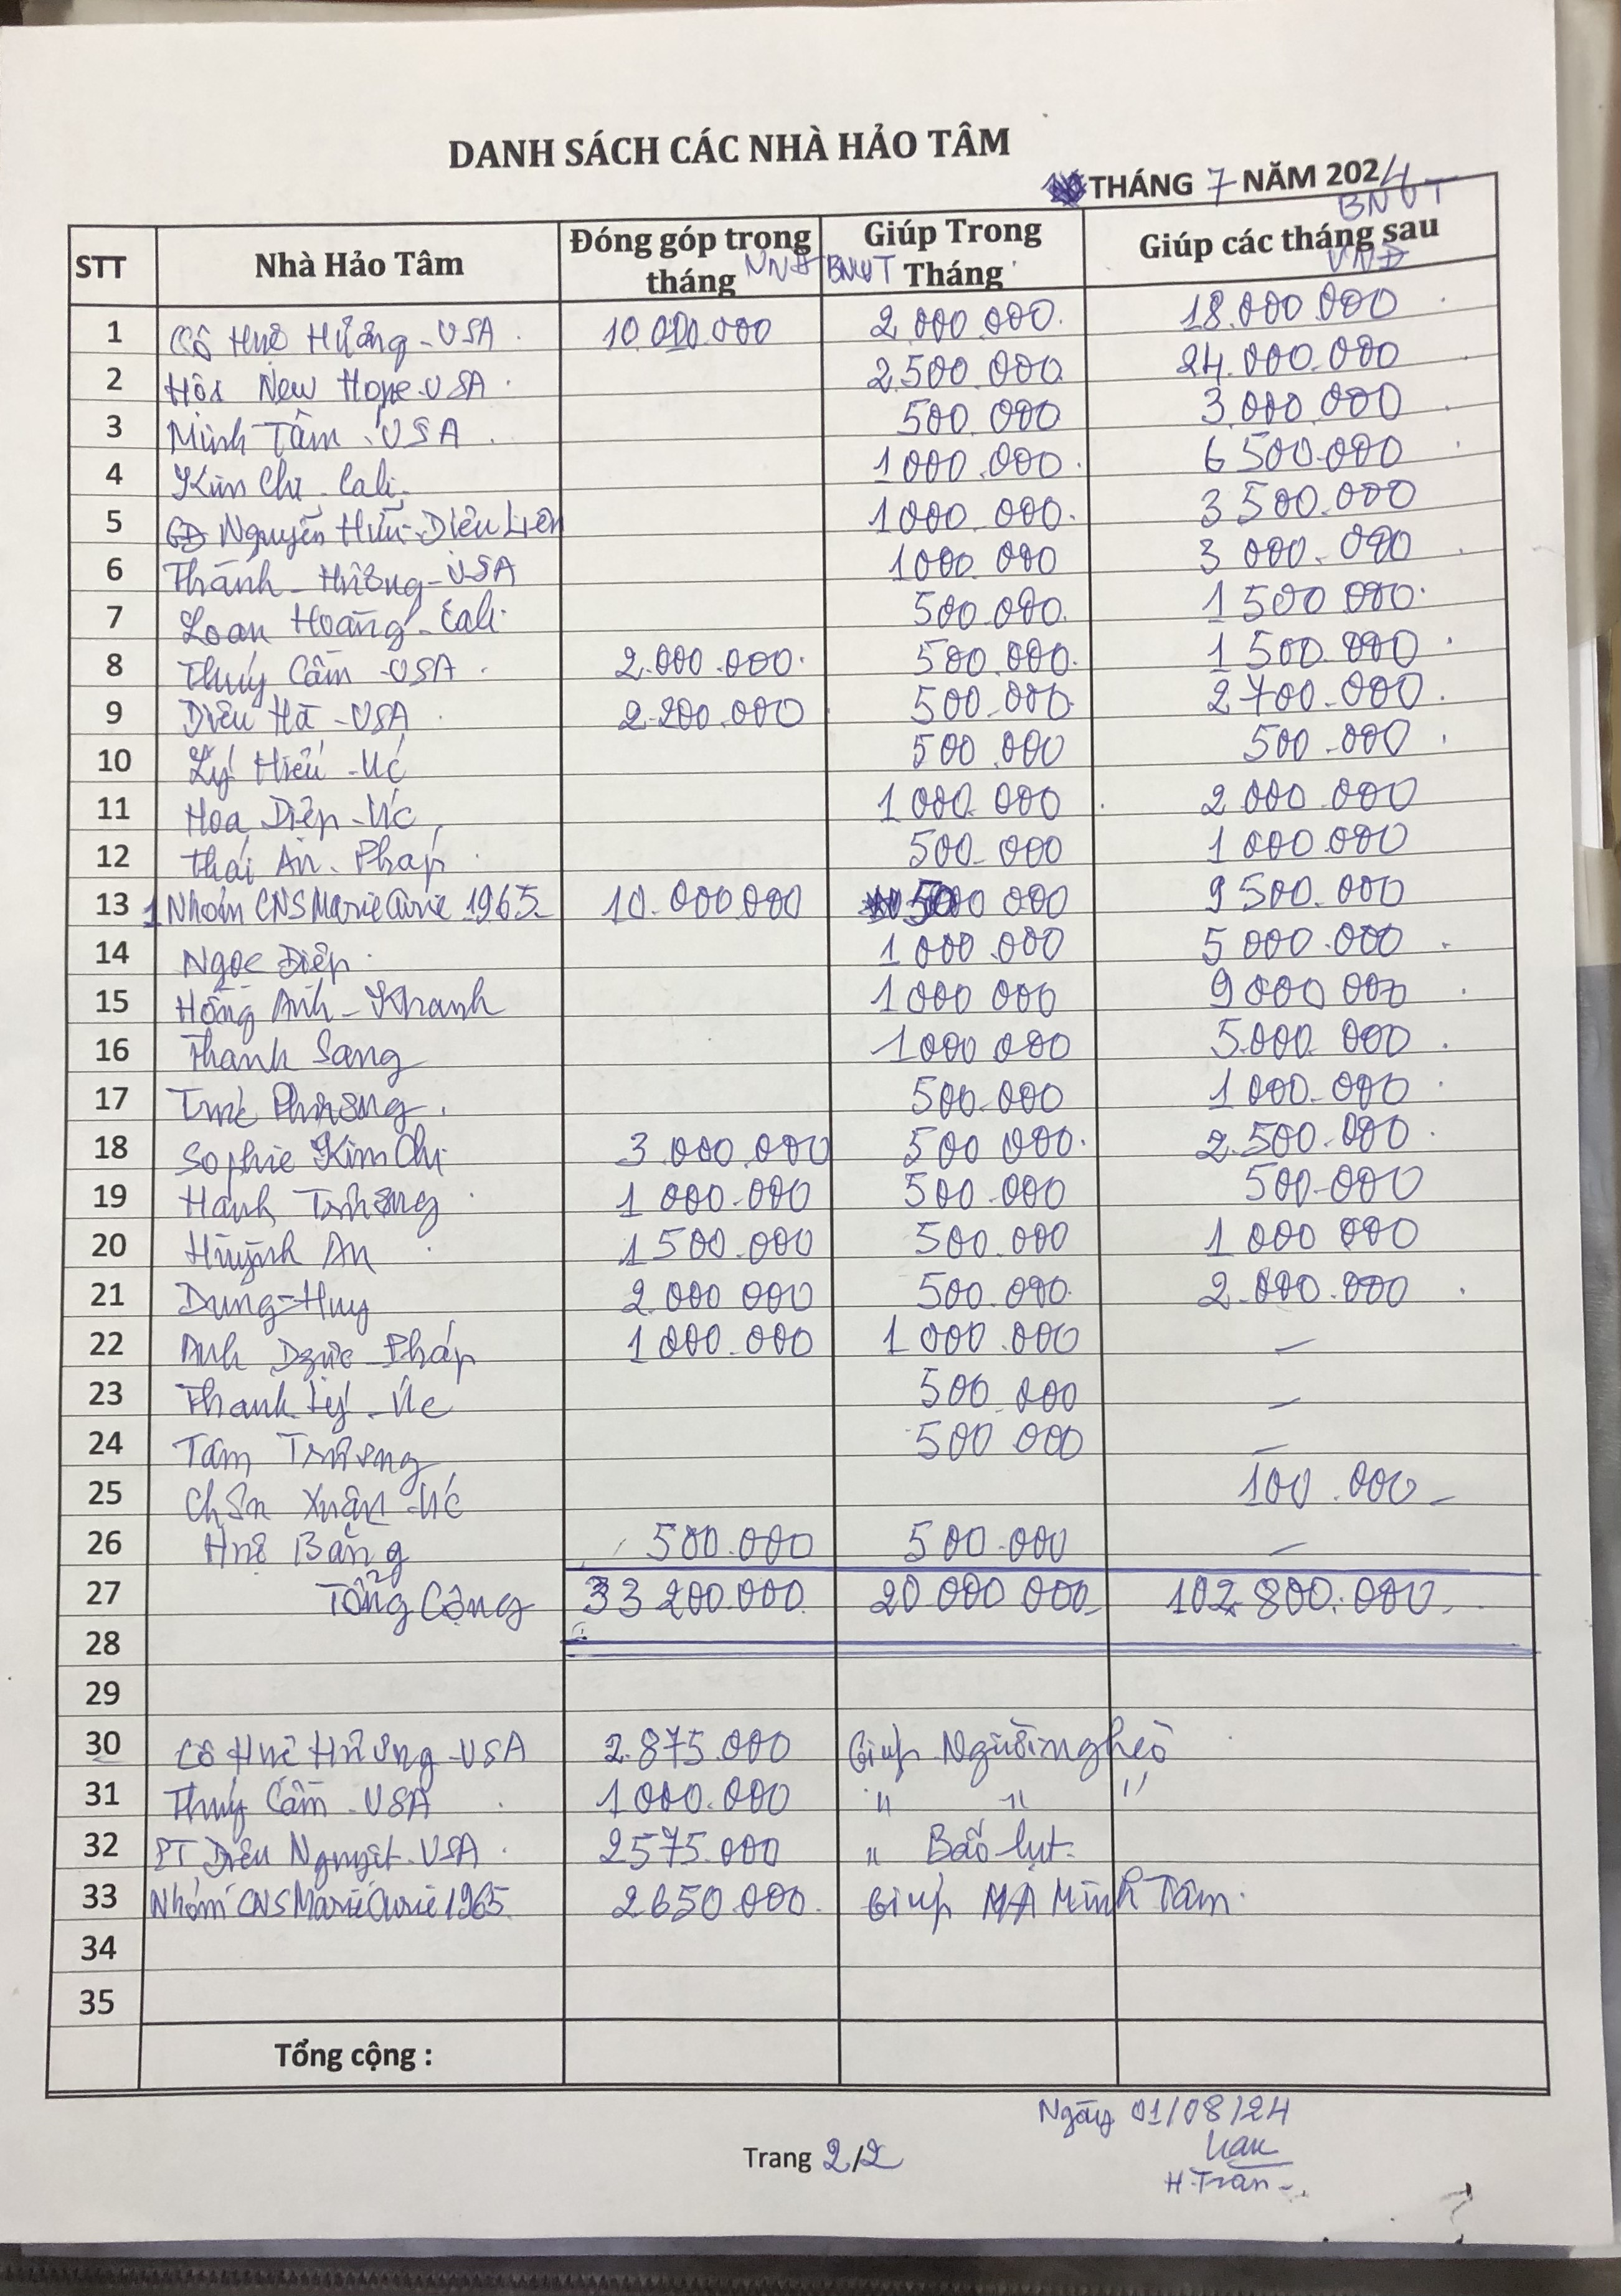 DANH SÁCH CÁC NHÀ HẢO TÂM
THÁNG 7 NĂM 2024
STT Nhà Hảo Tâm Đóng góp trong tháng VNĐ Giúp Trong Tháng BNUT Giúp các tháng sau BNUT VNĐ
1 Cô Huệ Hương - USA 10.000.000 2.000.000. 18.000.000
2 Hội New Hope - USA 2.500.000 24.000.000
3 Minh Tâm - USA 500.000 3.000.000
4 Kim Chi - Cali 1000.000. 6 500.000
5 GĐ Nguyễn Hữu - Diệu Liên 1000.000. 3 500.000
6 Thánh - Hương - USA 1000.000 3 000.000
7 Loan Hoàng - Cali 500.000. 1 500 000.
8 Thuý Cầm - USA 2.000.000. 500.000. 1 500.000
9 Diệu Hà - USA 2.200.000 500.000 2 700.000.
10 Lý Hiếu - Úc 500.000 500.000
11 Hoa Diệp - Úc 1 000.000 2 000.000
12 Thái An - Pháp 500.000 1 000.000
13 Nhóm CNS Marie Curie 1965 10.000.000 500 000 9 500.000
14 Ngọc Điệp 1 000.000 5 000.000
15 Hồng Anh - Khanh 1000 000 9 000 000
16 Thanh Sang 1000 000 5.000.000
17 Trúc Phương 500.000 1 000.000
18 Sophie Kim Chi 3.000.000 500 000. 2.500.000
19 Hạnh Trương 1 000.000 500.000 500.000
20 Huỳnh An 1 500.000 500.000 1 000 000
21 Dung - Huy 2.000 000 500.000 2.000.000
22 Anh Dược - Pháp 1 000.000 1 000.000 -
23 Thanh Lý - Úc 500.000 -
24 Tâm Trương 500 000 -
25 Xuân - Úc 100.000 -
26 Huệ Bằng 500.000 500.000 -
27 Tổng Cộng 33 200.000 20 000 000 102.800.000
28
29
30 Cô Huệ Hương - USA 2.875.000 Giúp Người nghèo
31 Thuý Cầm - USA 1000.000 " " "
32 PT Diệu Nguyệt - USA 2575.000 " Bão lụt
33 Nhóm CNS Marie Curie 1965 2650.000 Giúp MA Minh Tâm.
34
35
Tổng cộng :
Ngày 01/08/24
Trang 2/2
H. Trân